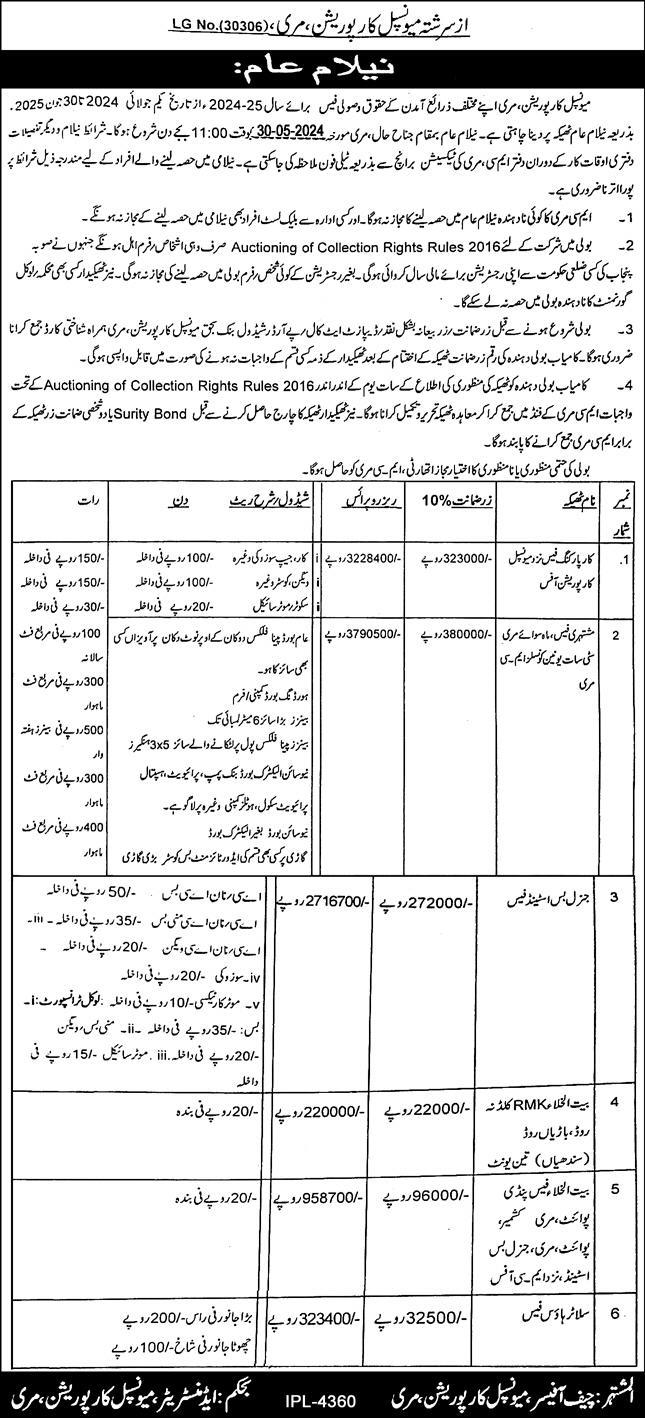 از سرشتہ میونسپل کارپوریشن، مری، LG No.(30306)
نیلام عام:
میونسپل کارپوریشن، مری اپنے مختلف ذرائع آمدن کے حقوق وصولی فیس برائے سال 25-2024ء از تاریخ یکم جولائی 2024 تا 30 جون 2025۔
بذریعہ نیلام عام ٹھیکہ پر دینا چاہتی ہے۔ نیلام عام بمقام جناح ہال، مری مورخہ 30-05-2024 بوقت 11:00 بجے دن شروع ہوگا۔ شرائط نیلام و دیگر تفصیلات
دفتری اوقات کار کے دوران دفتر ایم سی، مری کی ٹیکسیشن برانچ سے بذریعہ ٹیلی فون ملاحظہ کی جاسکتی ہے۔ نیلامی میں حصہ لینے والے افراد کے لیے مندرجہ ذیل شرائط پر
پورا اترنا ضروری ہے۔
1۔ ایم سی مری کا کوئی نادہندہ نیلام عام میں حصہ لینے کا مجاز نہ ہوگا۔ اور کسی ادارہ سے بلیک لسٹ افراد بھی نیلامی میں حصہ لینے کے مجاز نہ ہونگے۔
2۔ بولی میں شرکت کے لئے Auctioning of Collection Rights Rules 2016 صرف وہی اشخاص/فرم اہل ہونگے جنہوں نے صوبہ
پنجاب کی کسی ضلعی حکومت سے اپنی رجسٹریشن برائے مالی سال کروائی ہوگی۔ بغیر رجسٹریشن کے کوئی شخص/فرم بولی میں حصہ لینے کی مجاز نہ ہوگی۔ نیز ٹھیکیدار کسی بھی محکمہ/لوکل
گورنمنٹ کا نادہندہ بولی میں حصہ نہ لے سکے گا۔
3۔ بولی شروع ہونے سے قبل زرضمانت/زر بیعانہ بشکل نقد/ڈیپازٹ ایٹ کال/پے آرڈر شیڈول بنک بحق میونسپل کارپوریشن، مری ہمراہ شناختی کارڈ جمع کرانا
ضروری ہوگا۔ کامیاب بولی دہندہ کی رقم زرضمانت ٹھیکہ کے اختتام کے بعد ٹھیکیدار کے ذمہ کسی قسم کے واجبات نہ ہونے کی صورت میں قابل واپسی ہوگی۔
4۔ کامیاب بولی دہندہ کو ٹھیکہ کی منظوری کی اطلاع کے سات یوم کے اندر اندر Auctioning of Collection Rights Rules 2016 کے تحت
واجبات ایم سی مری کے فنڈ میں جمع کرا کر معاہدہ ٹھیکہ تحریر و تکمیل کرانا ہوگا۔ نیز ٹھیکیدار ٹھیکہ کا چارج حاصل کرنے سے قبل Surity Bond یا دو شخصی ضمانت زر ٹھیکہ کے
برابر ایم سی مری جمع کرانے کا پابند ہوگا۔
بولی کی حتمی منظوری یا نامنظوری کا اختیار مجاز اتھارٹی، ایم سی مری کو حاصل ہوگا۔
نمبر شمار نام ٹھیکہ زرضمانت 10% ریزرو پرائس شیڈول/شرح ریٹ دن رات
1. کار پارکنگ فیس نزد میونسپل 323000/- روپے 3228400/- روپے i کار، جیپ سوزوکی وغیرہ 100/- روپے فی داخلہ 150/- روپے فی داخلہ
کارپوریشن آفس i ویگن، کوسٹر وغیرہ 100/- روپے فی داخلہ 150/- روپے فی داخلہ
i سکوٹر/موٹر سائیکل 20/- روپے فی داخلہ 30/- روپے فی داخلہ
2 مشتہری فیس، ماہ سوائے مری 380000/- روپے 3790500/- روپے عام بورڈ پینا فلکس دوکان کے اوپر نوٹ دکان پر آویزاں کسی 100 روپے فی مربع فٹ
سٹی سات یونین کونسلز ایم سی بھی سائز کا ہو۔ سالانہ
مری ہورڈنگ بورڈ کمپنی/فرم 300 روپے فی مربع فٹ
بینرز بڑا سائز 6 میٹر لمبائی تک ماہوار
بینرز پینا فلکس پول پر لٹکانے والے سائز 3x5 ہینگیرز 500 روپے فی بینرز ہفتہ
نیوسائن الیکٹرک بورڈ بنک پمپ، پرائیویٹ، ہسپتال وار
پرائیویٹ سکول، ہوٹلز کمپنی وغیرہ پر لاگو ہے۔ 300 روپے فی مربع فٹ
نیوسائن بورڈ بغیر الیکٹرک بورڈ ماہوار
گاڑی پر کسی بھی قسم کی ایڈورٹائزمنٹ بس کوسٹر بڑی گاڑی 400 روپے فی مربع فٹ
ماہوار
3 جنرل بس اسٹینڈ فیس 272000/- روپے 2716700/- روپے اے سی/نان اے سی بس 50/- روپے فی داخلہ
اے سی/نان اے سی منی بس 35/- روپے فی داخلہ ۔ iii۔
اے سی/نان اے سی ویگن 20/- روپے فی داخلہ ۔
iv۔ سوزوکی 20/- روپے فی داخلہ
v۔ موٹر کار ٹیکسی 10/- روپے فی داخلہ :لوکل ٹرانسپورٹ: i۔
بس: 35/- روپے فی داخلہ ۔ii۔ منی بس/ویگن
20/- روپے فی داخلہ .iii. موٹر سائیکل 15/- روپے فی
داخلہ
4 بیت الخلاء RMK کلڈنہ 22000/- روپے 220000/- روپے 20/- روپے فی بندہ
روڈ، باڑیاں روڈ
(سندھیاں) تین یونٹ
5 بیت الخلاء فیس پنڈی 96000/- روپے 958700/- روپے 20/- روپے فی بندہ
پوائنٹ، مری کشمیر،
پوائنٹ، مری، جنرل بس
اسٹینڈ، نزد ایم سی آفس
6 سلاٹر ہاؤس فیس 32500/- روپے 323400/- روپے بڑا جانور فی راس 200/- روپے
چھوٹا جانور فی شاخ 100/- روپے
المشتہر: چیف آفیسر، میونسپل کارپوریشن، مری IPL-4360 بحکم: ایڈمنسٹریٹر، میونسپل کارپوریشن، مری